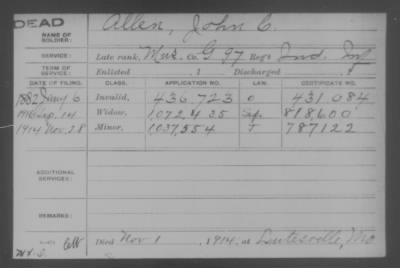 DEAD
NAME OF SOLDIER: Allen, John C.
SERVICE: Late rank, Mus. Co. G 97 Reg't Ind. Inf.
TERM OF SERVICE: Enlisted , 1 Discharged , 1
DATE OF FILING. CLASS. APPLICATION NO. LAW. CERTIFICATE NO.
1882 Jany 6 Invalid, 436,723 O 431,084
Sep. 14 Widow, 1,072,435 818600
1914 Nov. 28 Minor, 1,037,554 T 787122
ADDITIONAL SERVICES:
REMARKS:
Died Nov 1, 1914, at Lutesville, Mo